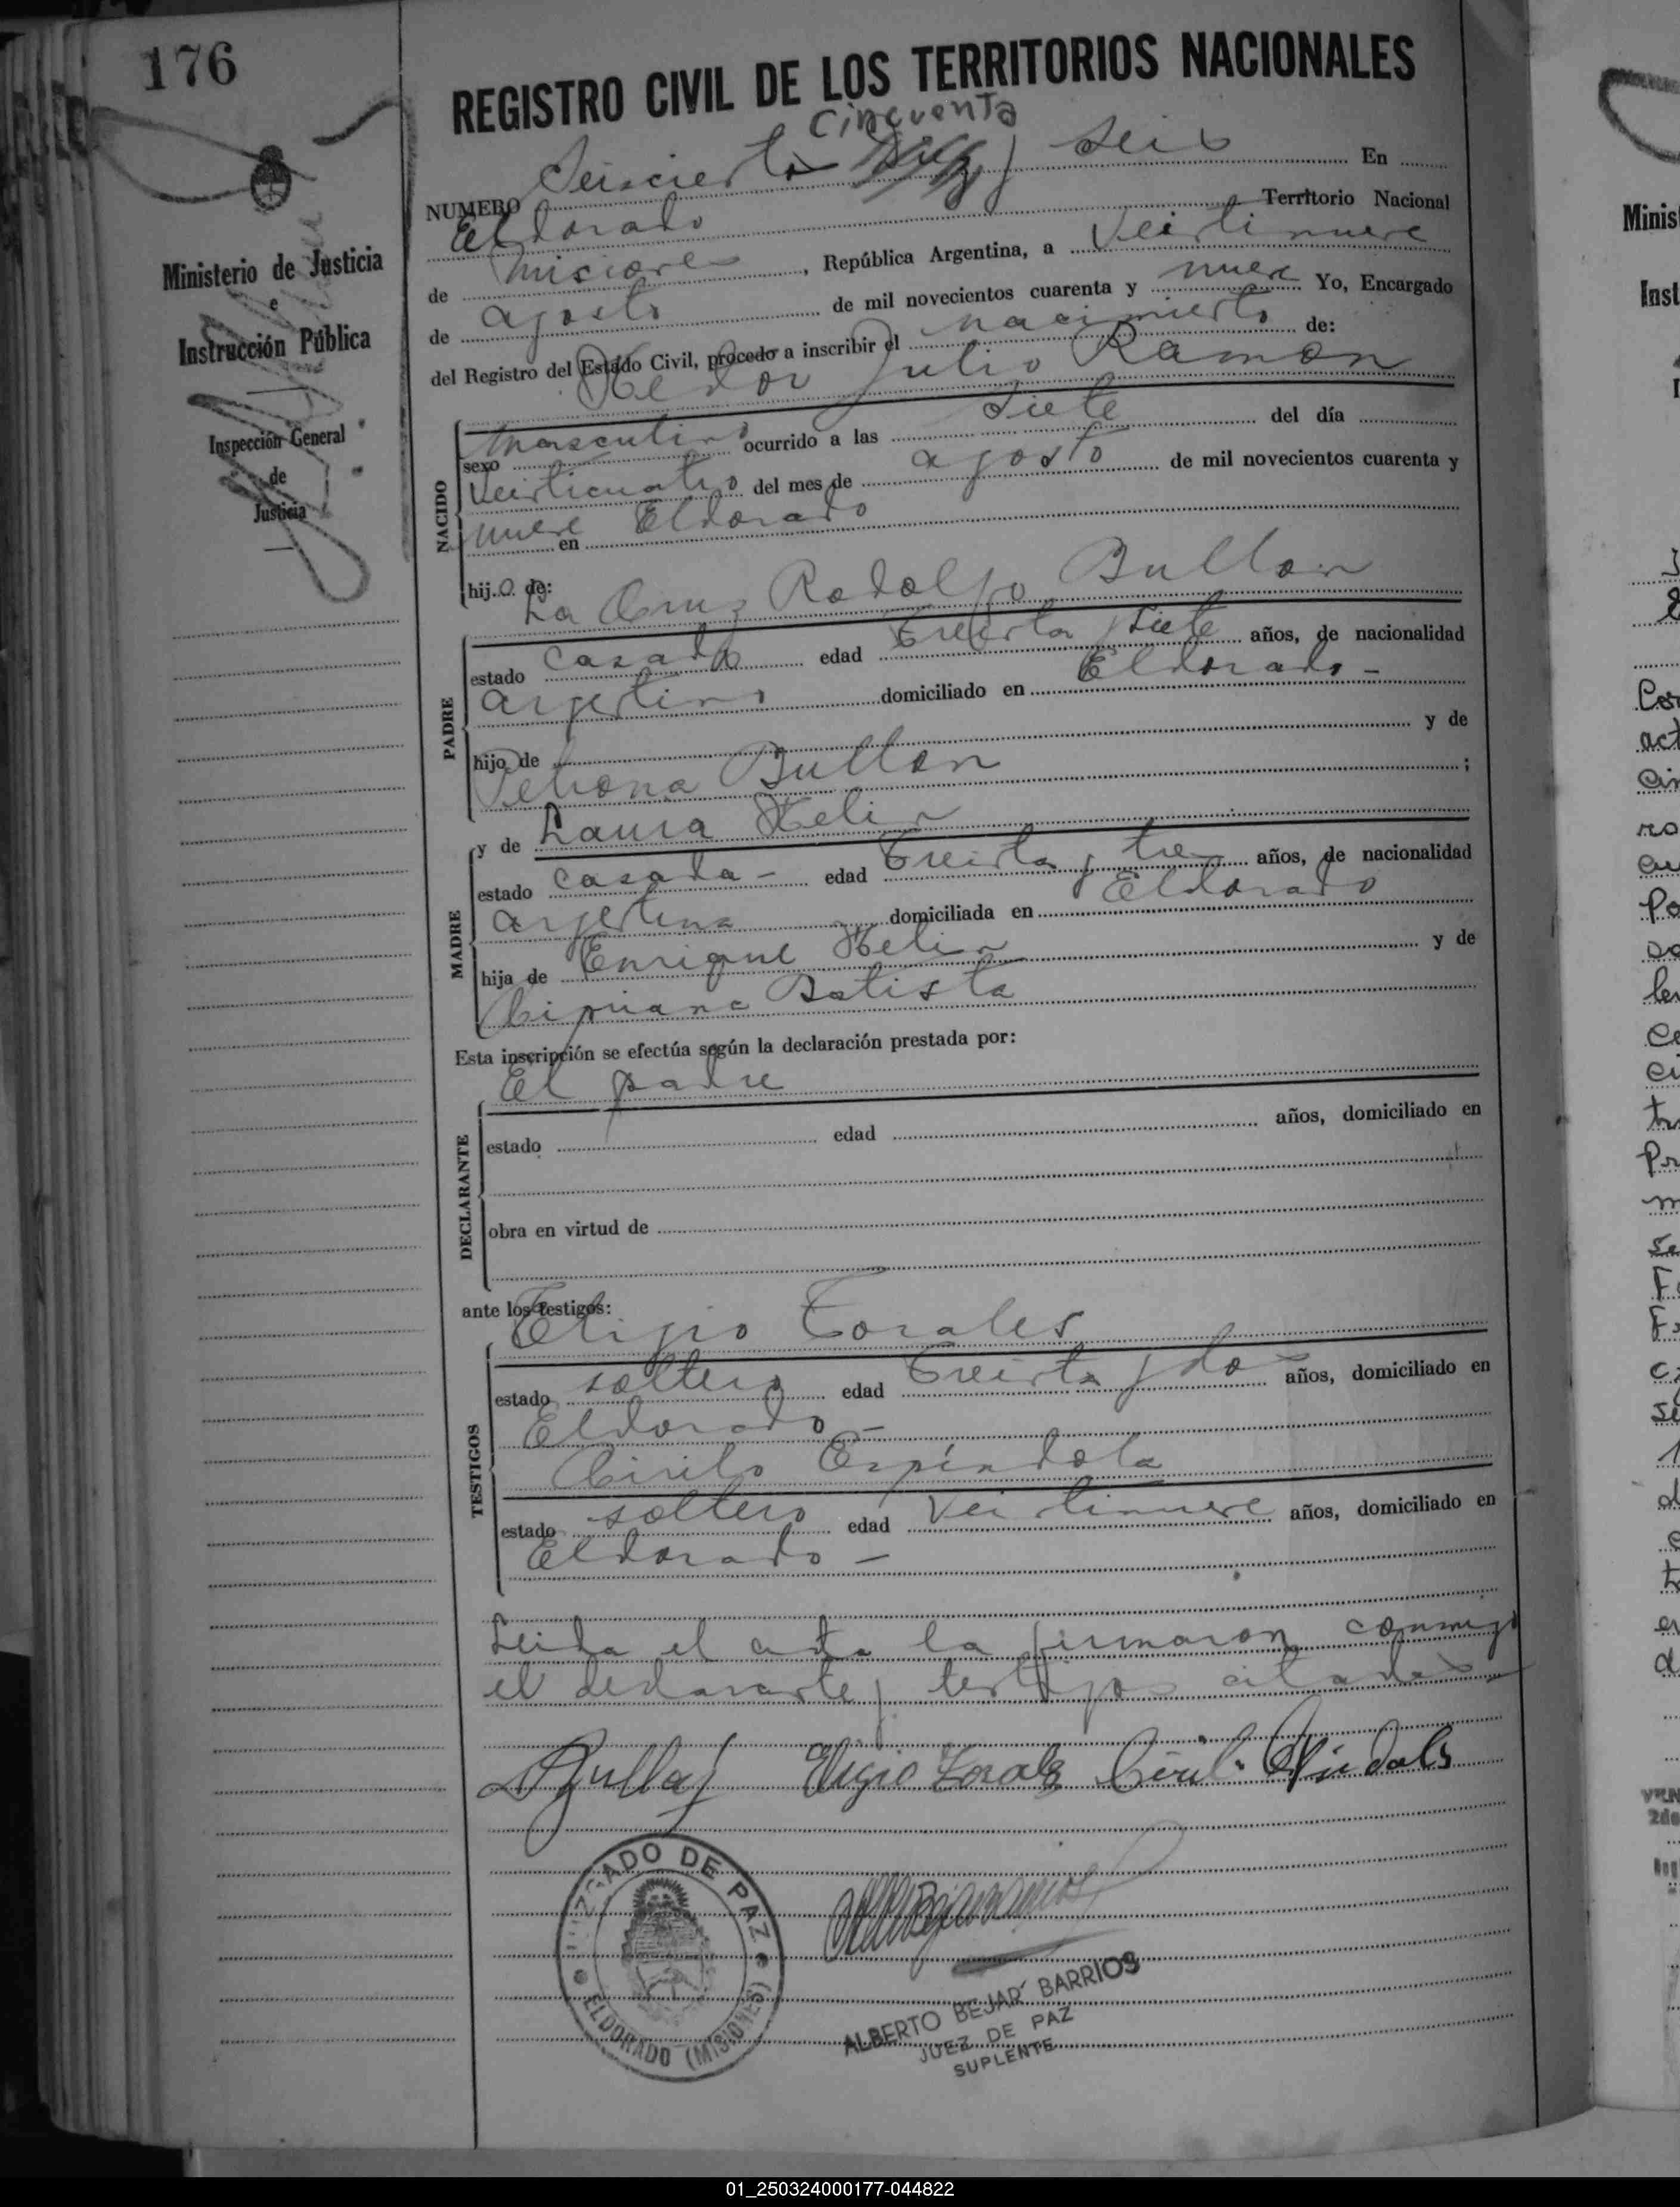 176
REGISTRO CIVIL DE LOS TERRITORIOS NACIONALES
Cincuenta
NUMERO Seiscientos Diez y seis En
Eldorado Territorio Nacional
de Misiones, República Argentina, a Veintinueve
de agosto de mil novecientos cuarenta y nueve Yo, Encargado
del Registro del Estado Civil, procedo a inscribir el nacimiento de:
Julio Ramon
Ministerio de Justicia
e
Instrucción Pública
Inspección General
de
Justicia
NACIDO
sexo masculino ocurrido a las Siete del día
Veinticuatro del mes de agosto de mil novecientos cuarenta y
nueve en Eldorado
hijo de:
La Cruz Rodolfo Bullon
PADRE
estado casado edad Treinta y Siete años, de nacionalidad
argentino domiciliado en Eldorado -
hijo de y de
Petrona Bullon ;
y de Laura Helin
MADRE
estado casada - edad Treinta y tres años, de nacionalidad
argentina domiciliada en Eldorado
hija de Enrique Helin y de
Cipriana Batista
Esta inscripción se efectúa según la declaración prestada por:
El padre
DECLARANTE
estado edad años, domiciliado en
obra en virtud de
ante los testigos:
Eligio Torales
TESTIGOS
estado soltero edad Treinta y dos años, domiciliado en
Eldorado -
Cirilo Espíndola
estado soltero edad Veintinueve años, domiciliado en
Eldorado -
Leida el acta la firmaron conmigo
el declarante y testigos citados
Eligio Torales Cirilo Espindola
JUZGADO DE PAZ
ELDORADO (MISIONES)
ALBERTO BEJAR BARRIOS
JUEZ DE PAZ
SUPLENTE
01_250324000177-044822